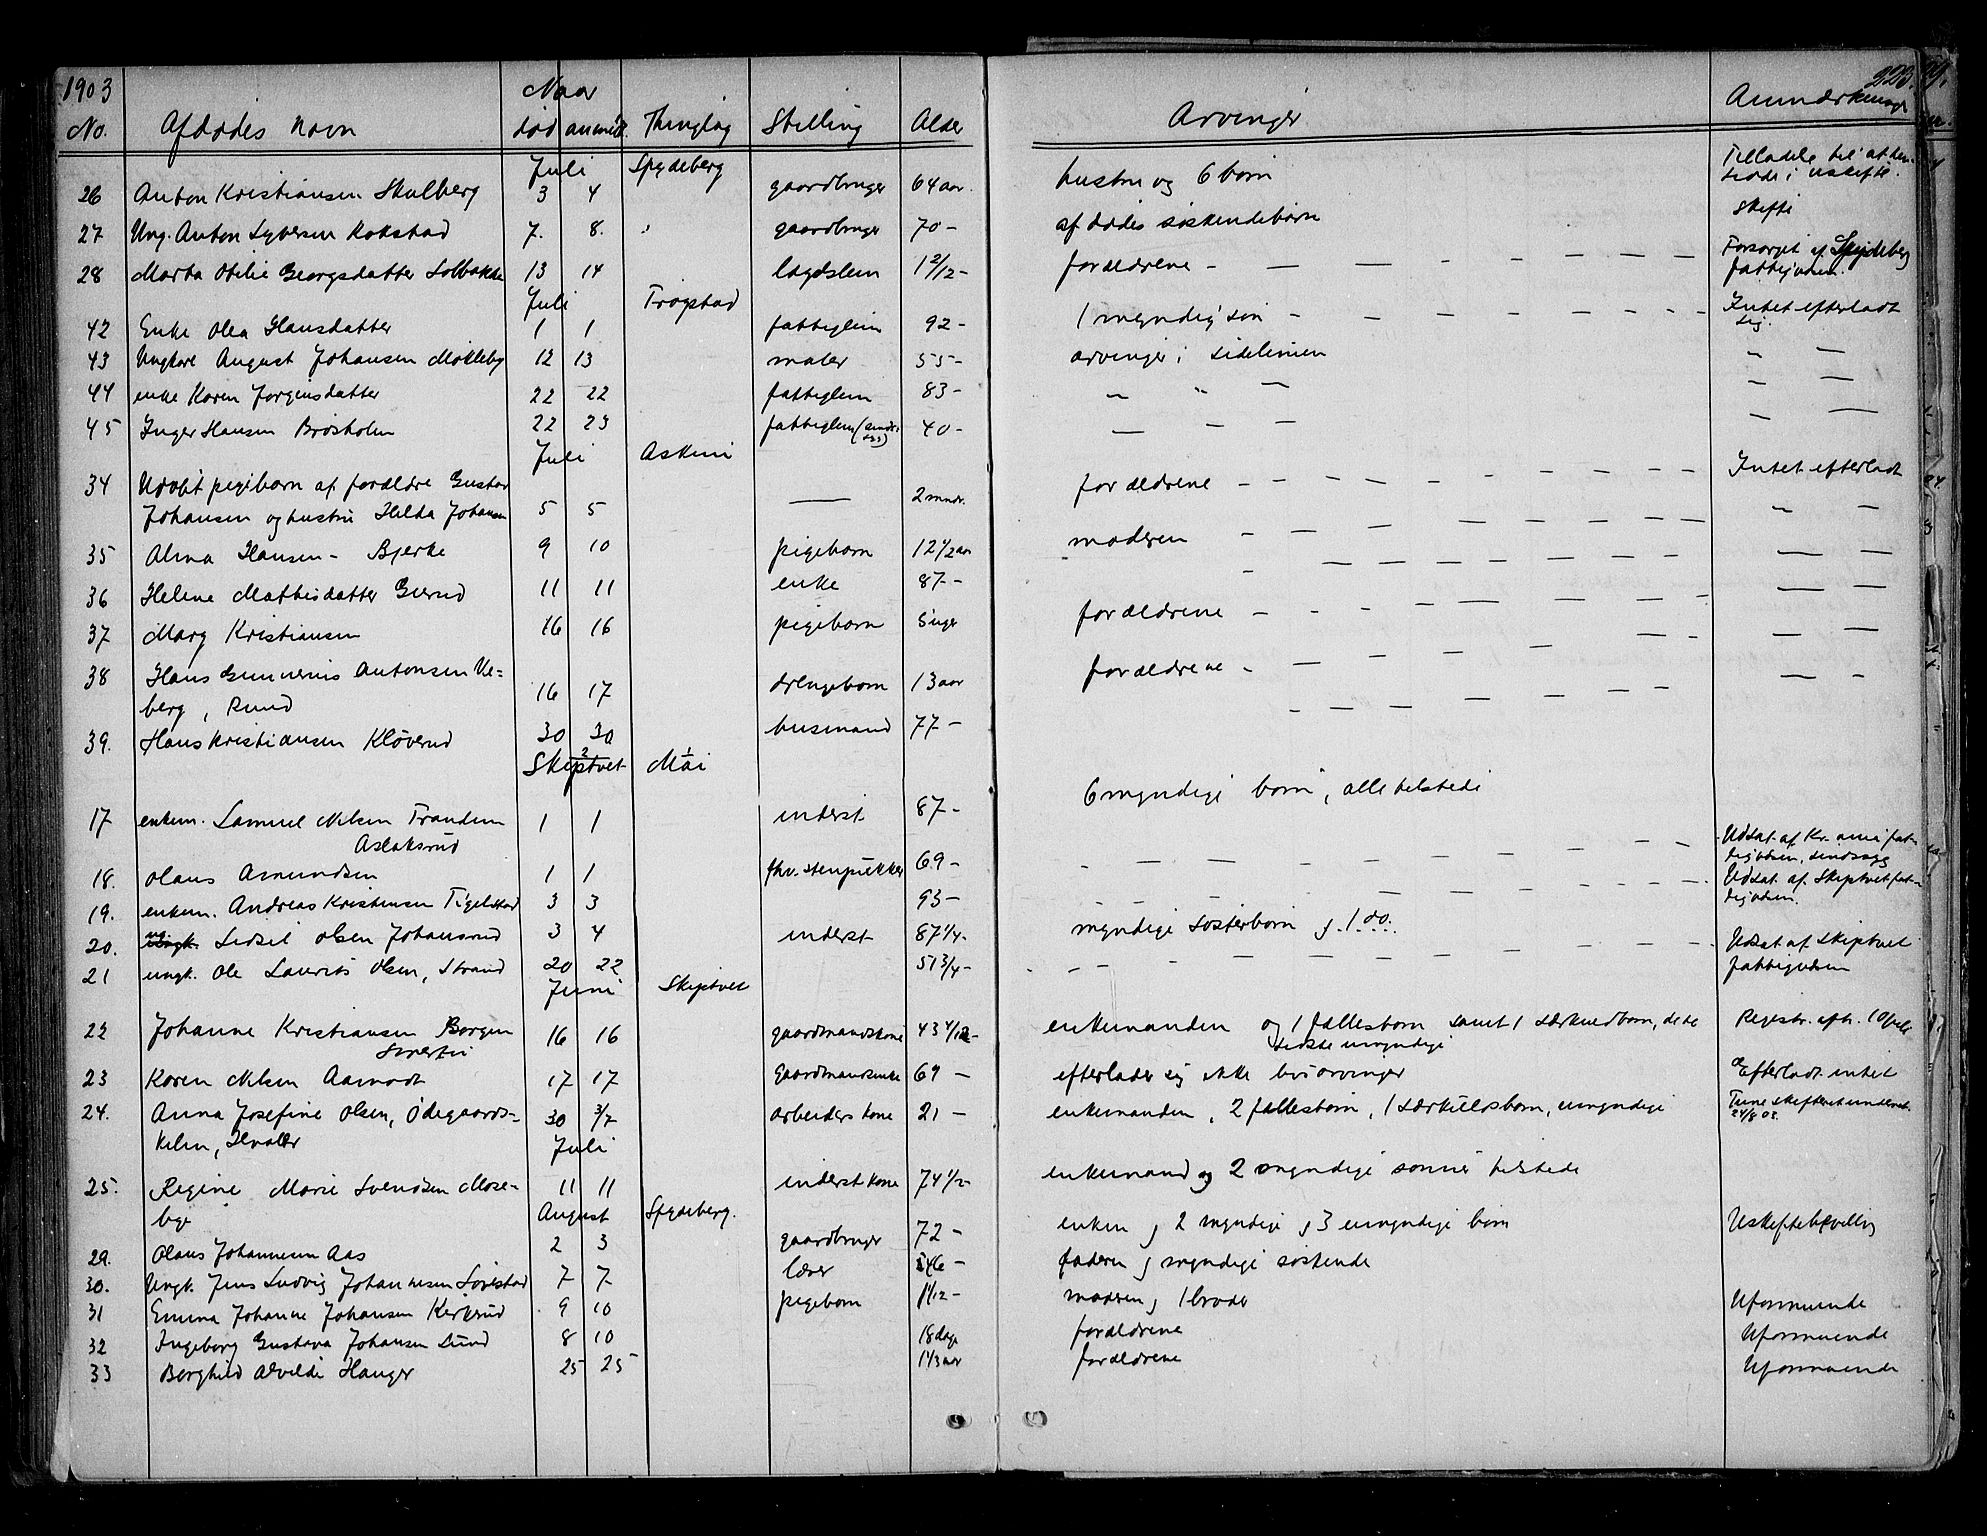 1903 Naar 223.
No. Afdødes navn død anmeldt Thinglag Stilling Alder Arvinger Anmærkninger
Juli Spydeberg
26 Anton Kristiansen Skulberg 3 4 gaardbruger 64 aar. hustru og 6 børn Tilladelse til at hen-
sidde i uskifte.
27 Ung. Anton Syversen Kokstad 7. 8. " gaardbruger 70 - afdødes søskendebørn Skifte
28 Marta Otelie Georgsdatter Solbakke 13 14 lægdslem 1 2/12 - forældrene - Forsørget af Spydeberg
fattigvæsen.
Juli Trøgstad
42 Enke Olea Hansdatter 1 1 fattiglem 92 - 1 myndig søn - Intet efterladt
sig.
43 Ungkarl August Johansen Møkleby 12 13 maler 55 - arvinger i sidelinien " —
44 enke Karen Jørgensdatter 22 22 fattiglem 83 - " " — " —
45 Inger Hansen Brøsholen 22 23 fattiglem (sinds-
syg) 40 - — " — " —
Juli Askim
34 Udøbt pigebarn af forældre Gustav
Johansen og hustru Hilda Johansen 5 5 — 2 mndr. forældrene - Intet efterladt
35 Alma Hansen - Bjerke 9 10 pigebarn 12 1/2 aar moderen " —
36 Helene Mathisdatter Gierud 11 11 enke 87 - — —
37 Marg Kristiansen 16 16 pigebarn 5 uger forældrene - — —
38 Hans Gunnerius Antonsen Ve-
berg, Rund 16 17 drengebarn 13 aar forældrene - — —
39. Hans Kristiansen Kløverud 30 30 husmand 77 - — -
Skiptvet 2 Mai 1
17 enkem. Samuel Nilsen Tranden
Aslaksrud 1 1 inderst 87 - 6 myndige børn, alle tilstede
18. Olaus Amundsen 1 1 fhv. stenpukker 69 - Udsat af Kr.ania fat-
tigvæsen, sindssyg
19. enkem. Andreas Kristensen Tigelstad 3 3 93 - Udsat af Skiptvet fat-
tigvæsen.
20. Sidsel Olsen Johansrud 3 4 inderst 87 1/4 - myndige søsterbørn og 1 do.
21 ungk. Ole Laurits Olsen, Strand 20 22 51 3/4 - Udsat af Skiptvet
fattigvæsen
Juni Skiptvet
22 Johanne Kristiansen Borgen
16 16 gaardmandskone 43 4/12 - enkemanden og 1 fællesbarn samt 1 særkuldbarn, dette
sidste umyndige Registr. efter.
23 Karen Nilsen Aamodt 17 17 Gaardmandsenke 69 - efterlader sig ikke livsarvinger Efterladt intet
24. Anna Josefine Olsen, Ødegaards-
kilen, Hvaler 30 3/7 arbeiders kone 21 - enkemanden, 2 fællesbørn, 1 særkuldsbarn, umyndige Tune skifteret underret.
24/8 03.
Juli
25. Regine Marie Svendsen Mose-
bye 11 11 inderst kone 74 1/2 - enkemand og 2 myndige sønner tilstede
August Spydeberg.
29. Olaus Johannesen Aas 2 3 gaardbruger 72 - enken og 2 myndige og 3 umyndige børn Uskiftebevilling
30. Ungk. Jens Ludvig Johannesen 7 7 lærer 46 - faderen og myndige søskende
31 Emma Johanne Johansen Kerkerud 9 10 pigebarn 1/12 - moderen og 1 broder Uformuende
32 Ingeborg Gustava Johansen Lund 8 10 18 dage forældrene Uformuende
33 Borghild Alvilde Hauger 25 25 1 1/3 aar forældrene Uformuende